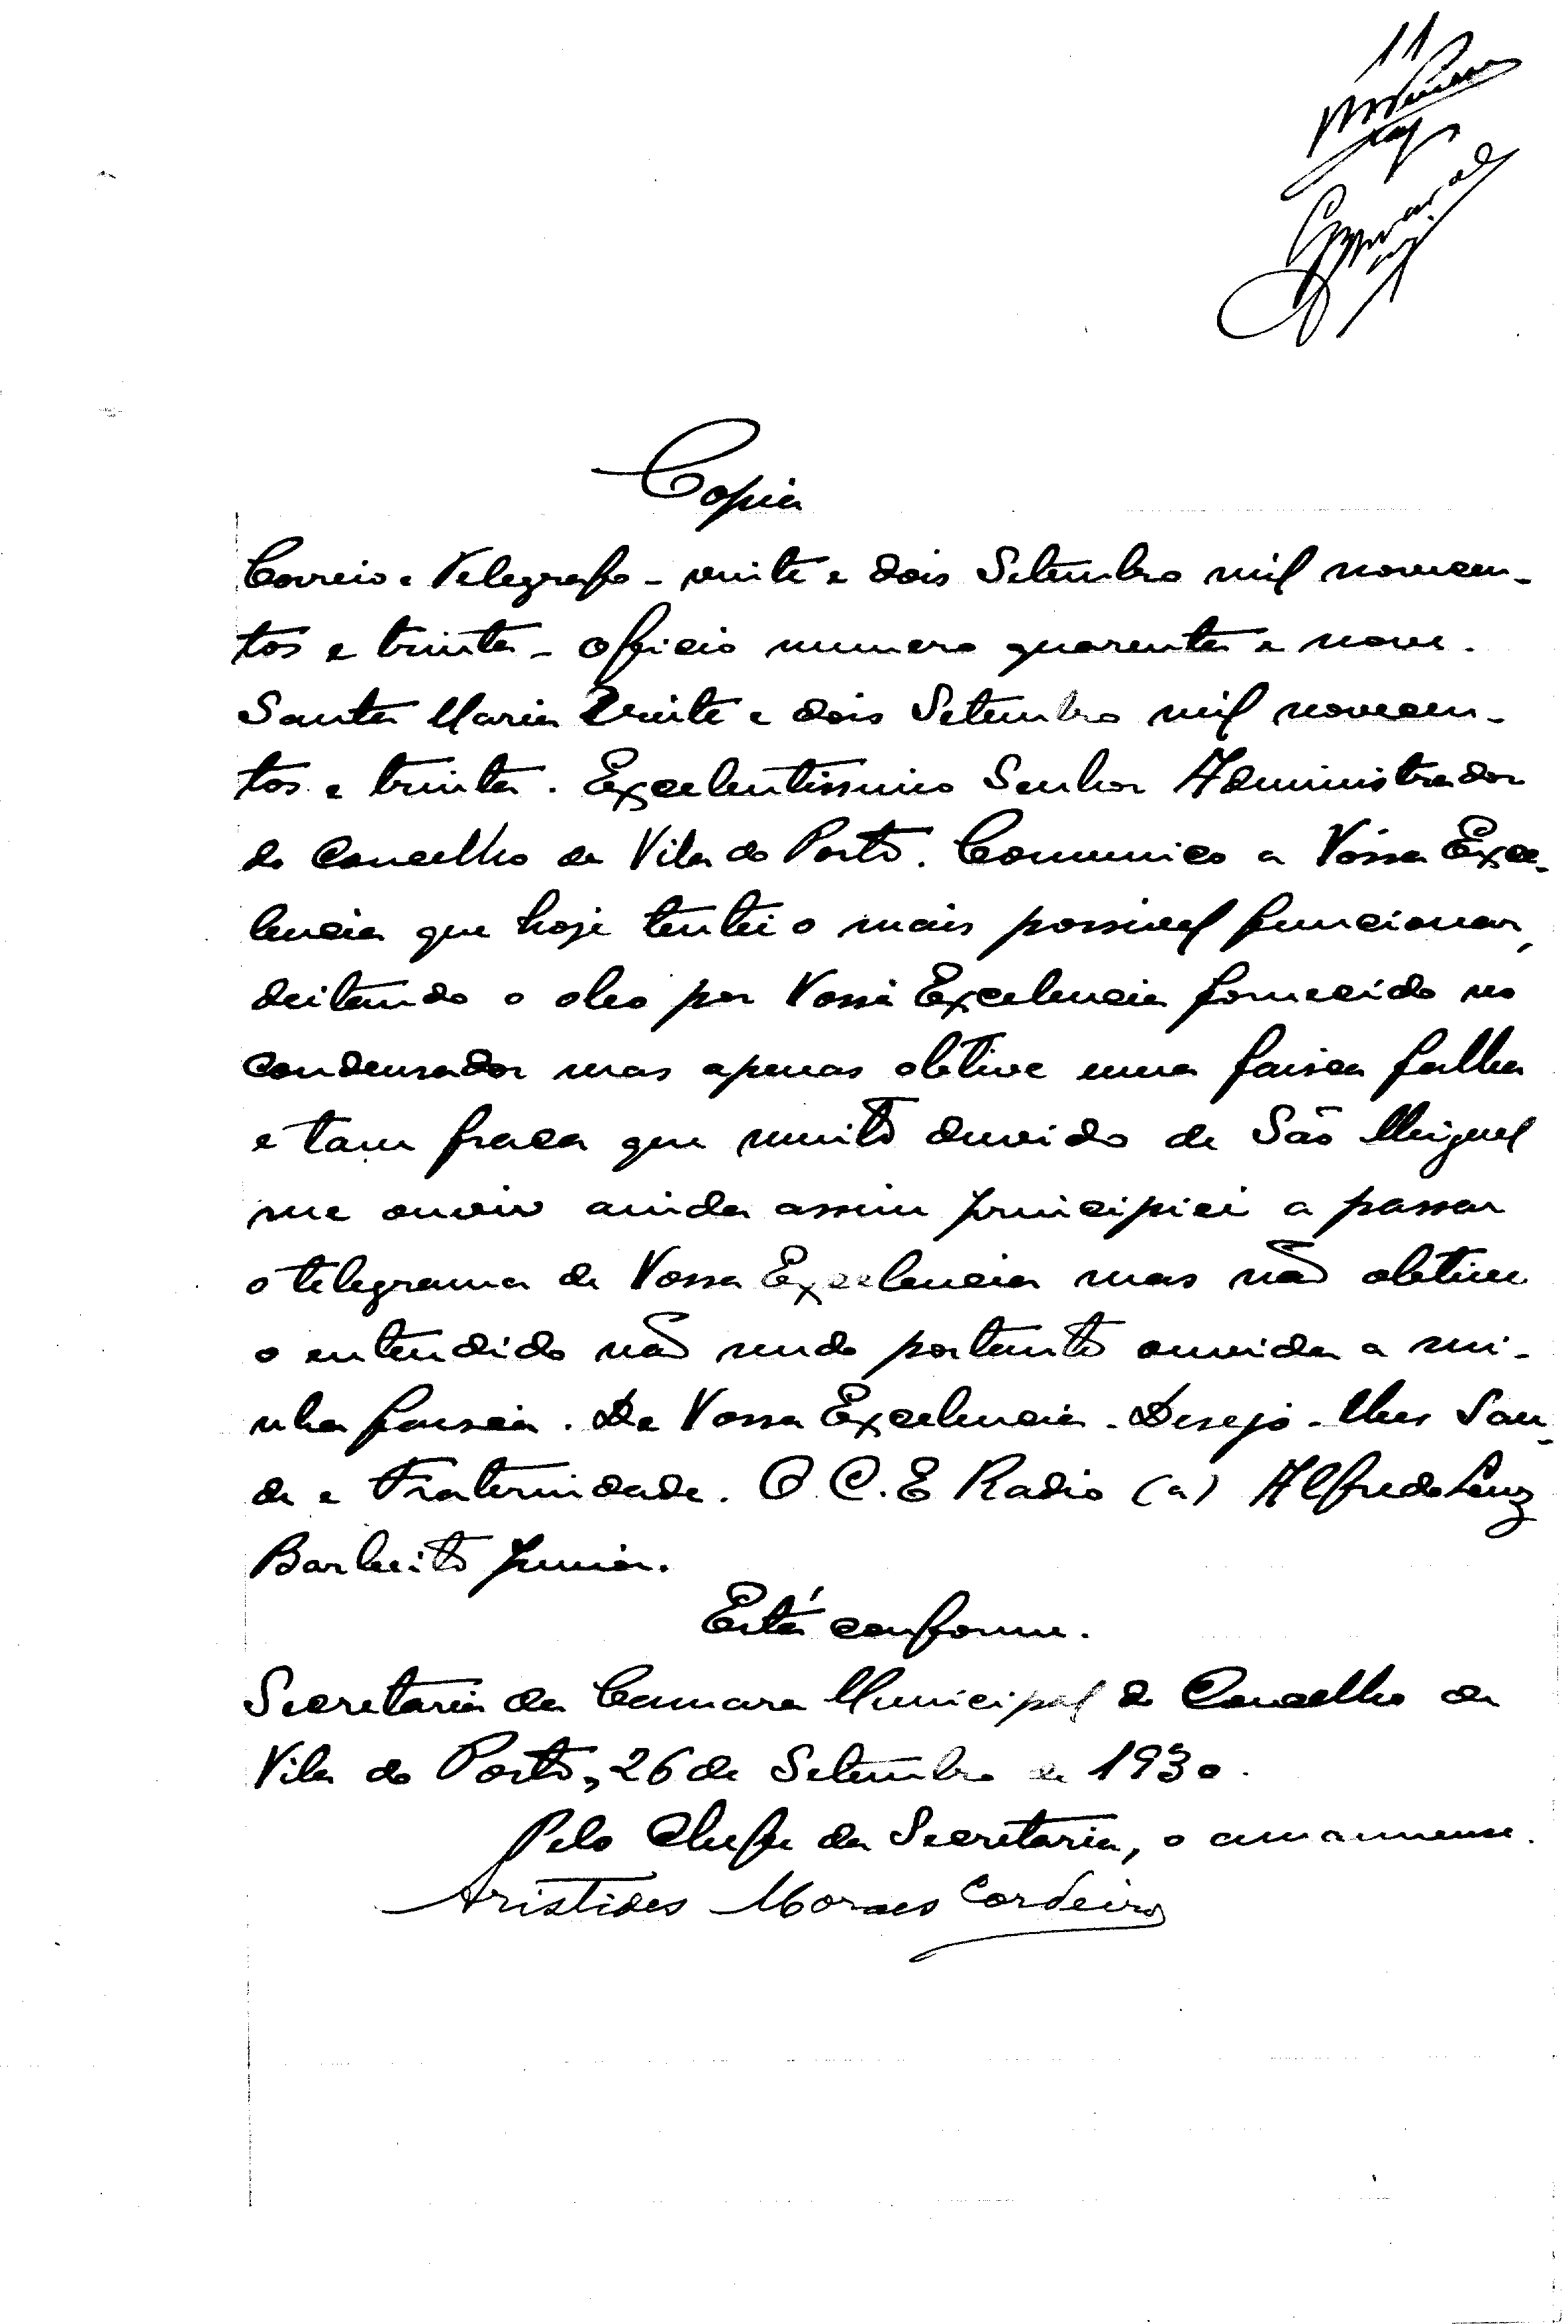 11
Copia
Correio e Telegrafo - vinte e dois Setembro mil novecen-
tos e trinta - Oficio numero quarenta e nove.
Santa Maria Vinte e dois Setembro mil novecen-
tos e trinta. Excelentissimo Senhor Administrador
do Concelho de Vila do Porto. Comunico a Vóssa Exce-
lencia que hoje tentei o mais possivel funcionar,
deitando o oleo por Vossa Excelencia fornecido no
condensador mas apenas obtive uma faisca falha
e tam fraca que muito duvido de São Miguel
me ouvir ainda assim principiei a passar
o telegrama de Vossa Excelencia mas não obtive
o entendido não sendo portanto ouvida a mi-
nha faisca. De Vossa Excelencia - Desejo-lhes Sau-
de e Fraternidade. O C. E Radio (a) Alfredo Luz
Barbeito Junior.
Está conforme.
Secretaria da Camara Municipal do Concelho de
Vila do Porto, 26 de Setembro de 1930.
Pelo Chefe da Secretaria, o amanuense.
Aristides Moraes Cordeiro